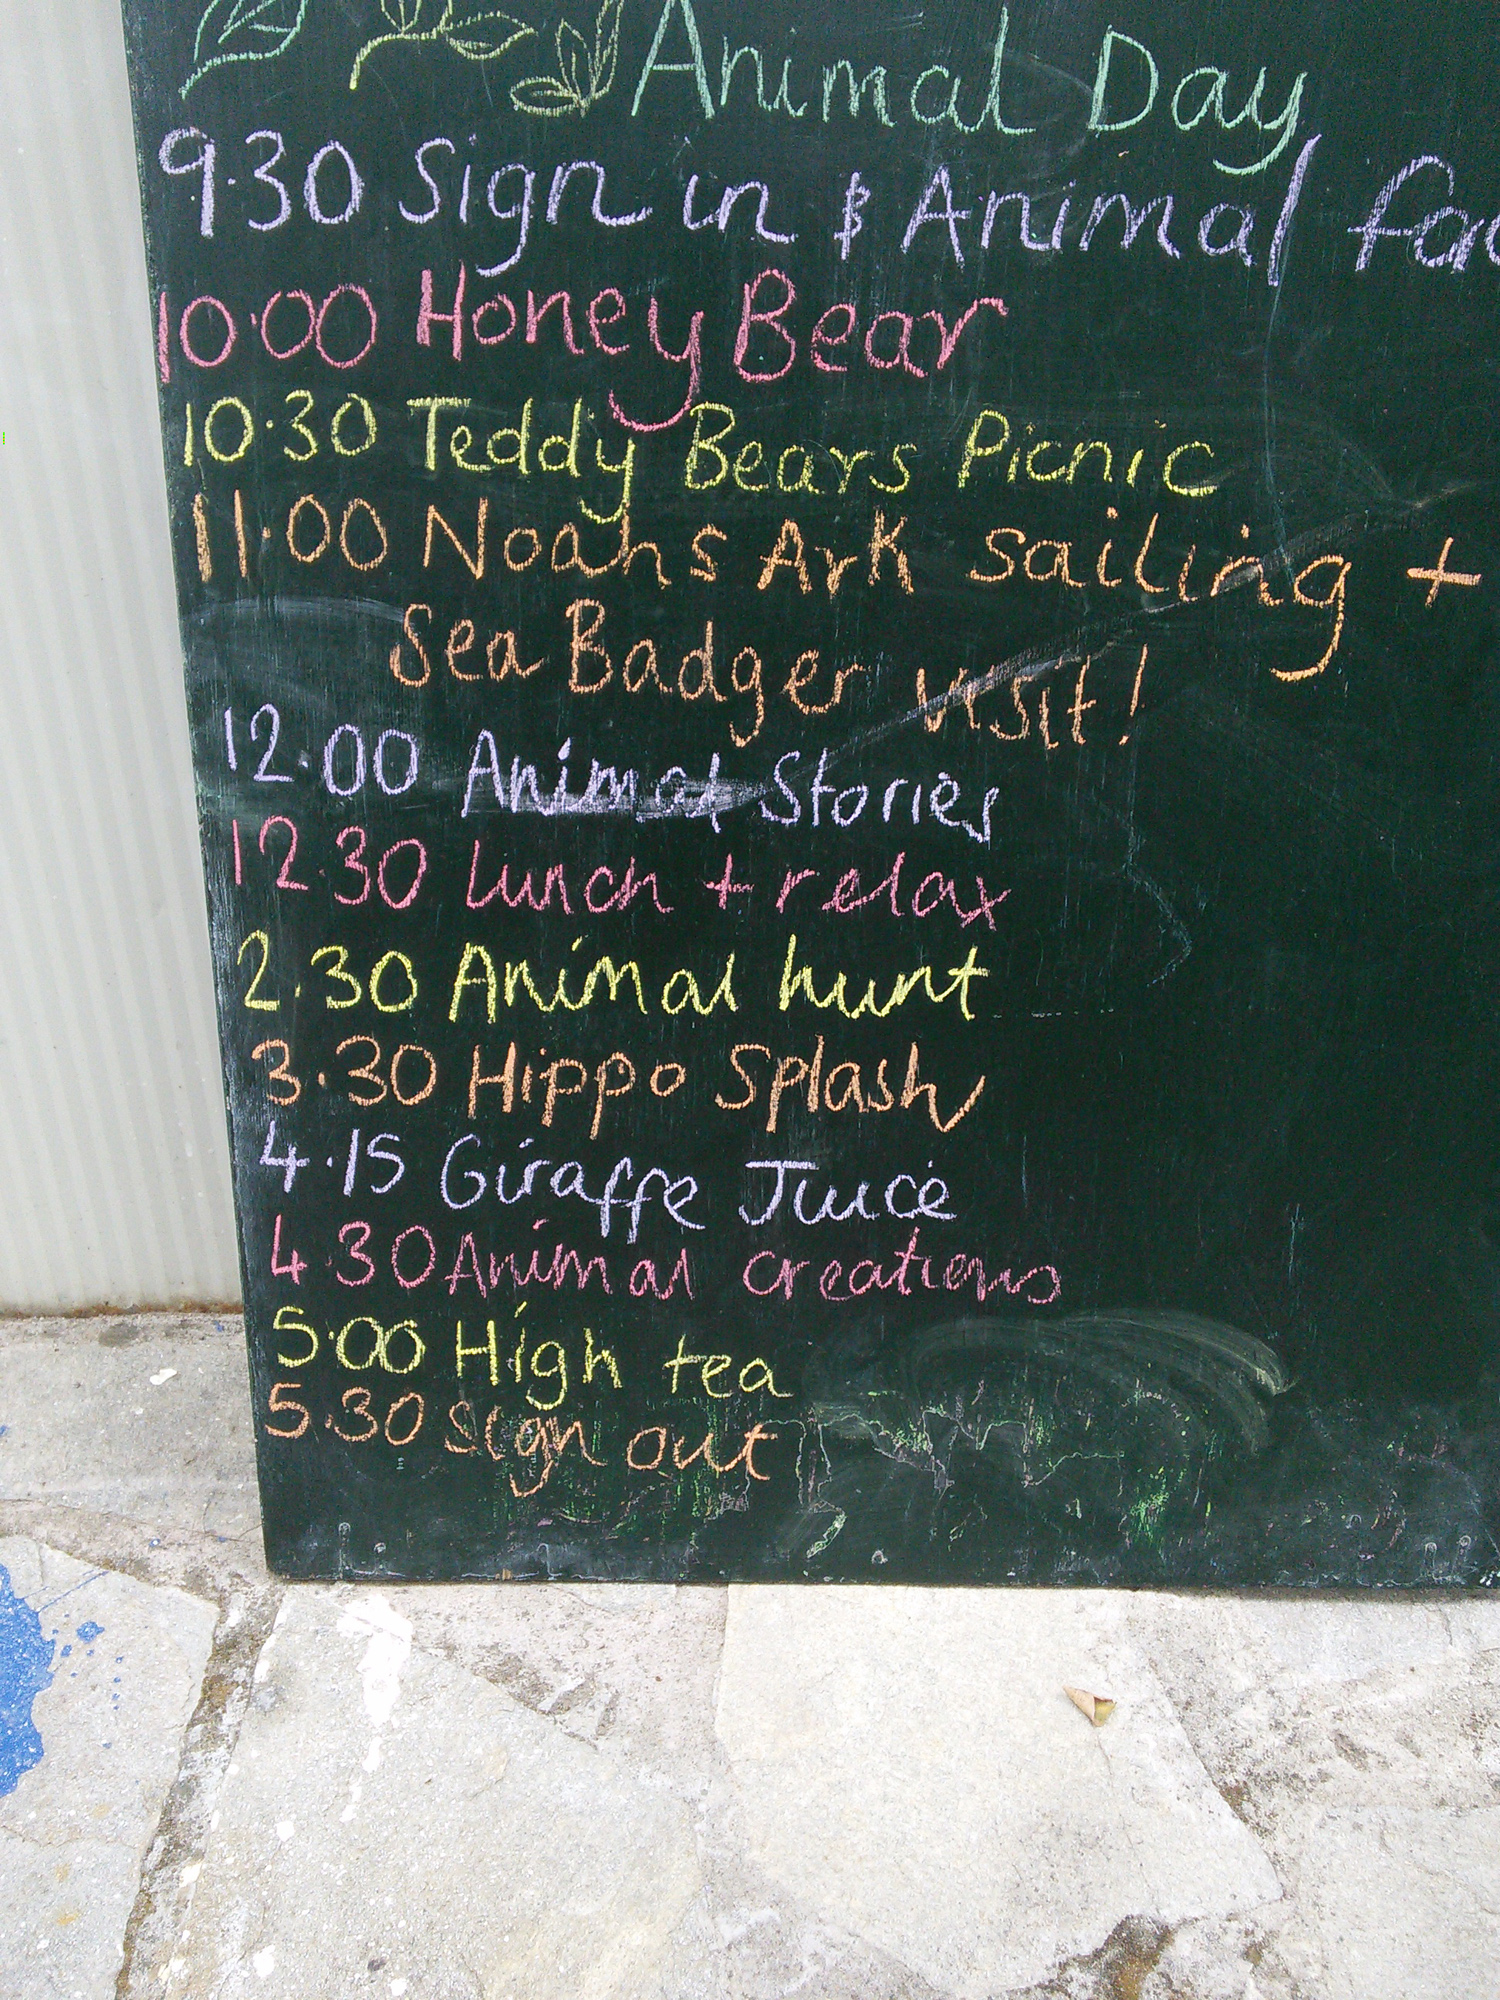 Animal Day
9.30 Sign in & Animal
10.00 Honey Bear
10.30 Teddy Bears Picnic
11.00 Noahs Ark sailing +
Sea Badger visit!
12.00 Animal Stories
12.30 Lunch + relax
2.30 Animal hunt
3.30 Hippo Splash
4.15 Giraffe Juice
4.30 Animal creations
5.00 High tea
5.30 Sign out